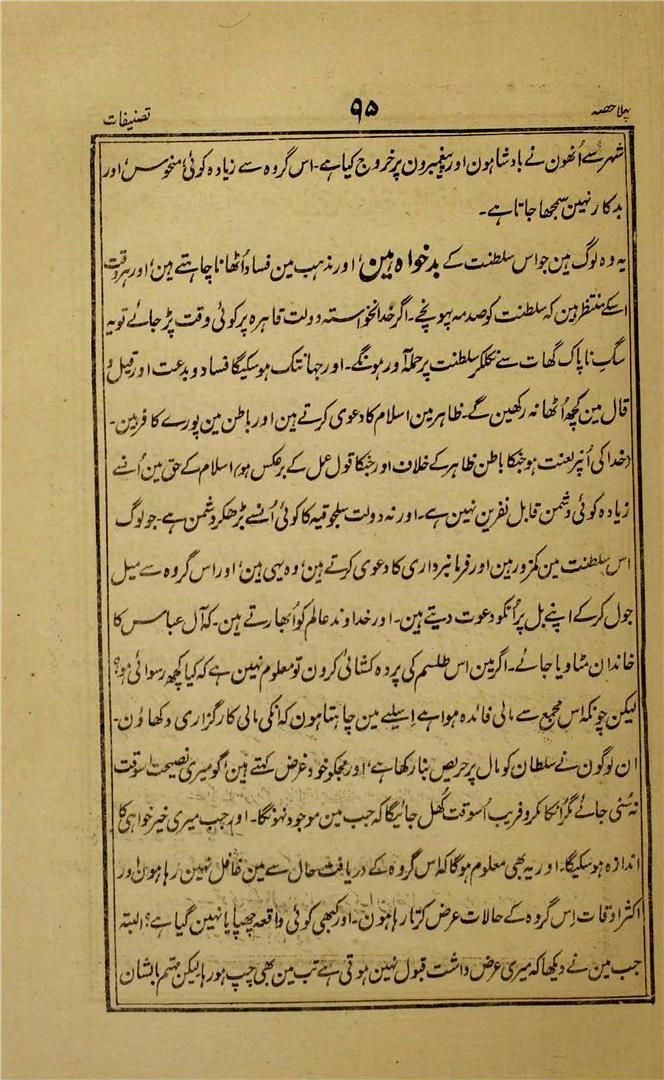 پہلا حصہ
۹۵
تصنیفات
شہر سے اُنھون نے بادشاہون اور پیغمبرون پر خروج کیا ہے۔ اس گروہ سے زیادہ کوئی منحوس اور
بدکار نہین سمجھا جاتا ہے۔
یہ وہ لوگ ہین جو اس سلطنت کے بدخواہ ہین، اور مذہب مین فساد اُٹھانا چاہتے ہین، اور ہر وقت
اسکے منتظر ہین کہ سلطنت کو صدمہ پہونچے۔ اگر خدانخواستہ دولت قاہرہ پر کوئی وقت پڑ جائے تو یہ
سگِ ناپاک گھات سے نکلکر سلطنت پر حملہ آور ہونگے۔ اور جہانتک ہو سکیگا فساد و بدعت اور قیل و
قال مین کچھ اُٹھا نہ رکھین گے۔ ظاہر مین اسلام کا دعوی کرتے ہین اور باطن مین پورے کافر ہین۔
(خدا کی اُنپر لعنت ہو جنکا باطن ظاہر کے خلاف اور جنکا قول عمل کے برعکس ہو) اسلام کے حق مین اُنسے
زیادہ کوئی دشمن قابل نفرین نہین ہے۔ اور نہ دولت سلجوقیہ کا کوئی اُنسے بڑھکر دشمن ہے۔ جو لوگ
اس سلطنت مین کمزور ہین اور فرمانبرداری کا دعوی کرتے ہین، وہ یہی ہین، اور اس گروہ سے میل
جول کر کے اپنے بل پر اُنکو دعوت دیتے ہین۔ اور خداوند عالم کو اُبھارتے ہین۔ کہ آل عباس کا
خاندان مٹا دیا جائے۔ اگر مین اس طلسم کی پردہ کشائی کرون تو معلوم نہین ہے کہ کیا کچھ رسوائی ہو؟
لیکن چونکہ اس مجمع سے مالی فائدہ ہوا ہے اِسلیے مین چاہتا ہون کہ انکی مالی کارگزاری دکھاؤن۔
ان لوگون نے سلطان کو مال پر حریص بنا رکھا ہے، اور مجکو خود غرض کہتے ہین، گو میری نصیحت اسوقت
نہ سُنی جائے مگر اُنکا مکر و فریب اُسوقت کُھل جائیگا کہ جب مین موجود نہونگا۔ اور جب میری خیرخواہی کا
اندازہ ہو سکیگا۔ اور یہ بھی معلوم ہوگا کہ اس گروہ کے دریافت حال سے مین غافل نہین رہا ہون اور
اکثر اوقات اِس گروہ کے حالات عرض کرتا رہا ہون۔ اور کبھی کوئی واقعہ چھپایا نہین گیا ہے؟ البتہ
جب مین نے دیکھا کہ میری عرض داشت قبول نہین ہوتی ہے تب مین بھی چپ ہو رہا لیکن مہتم بالشان